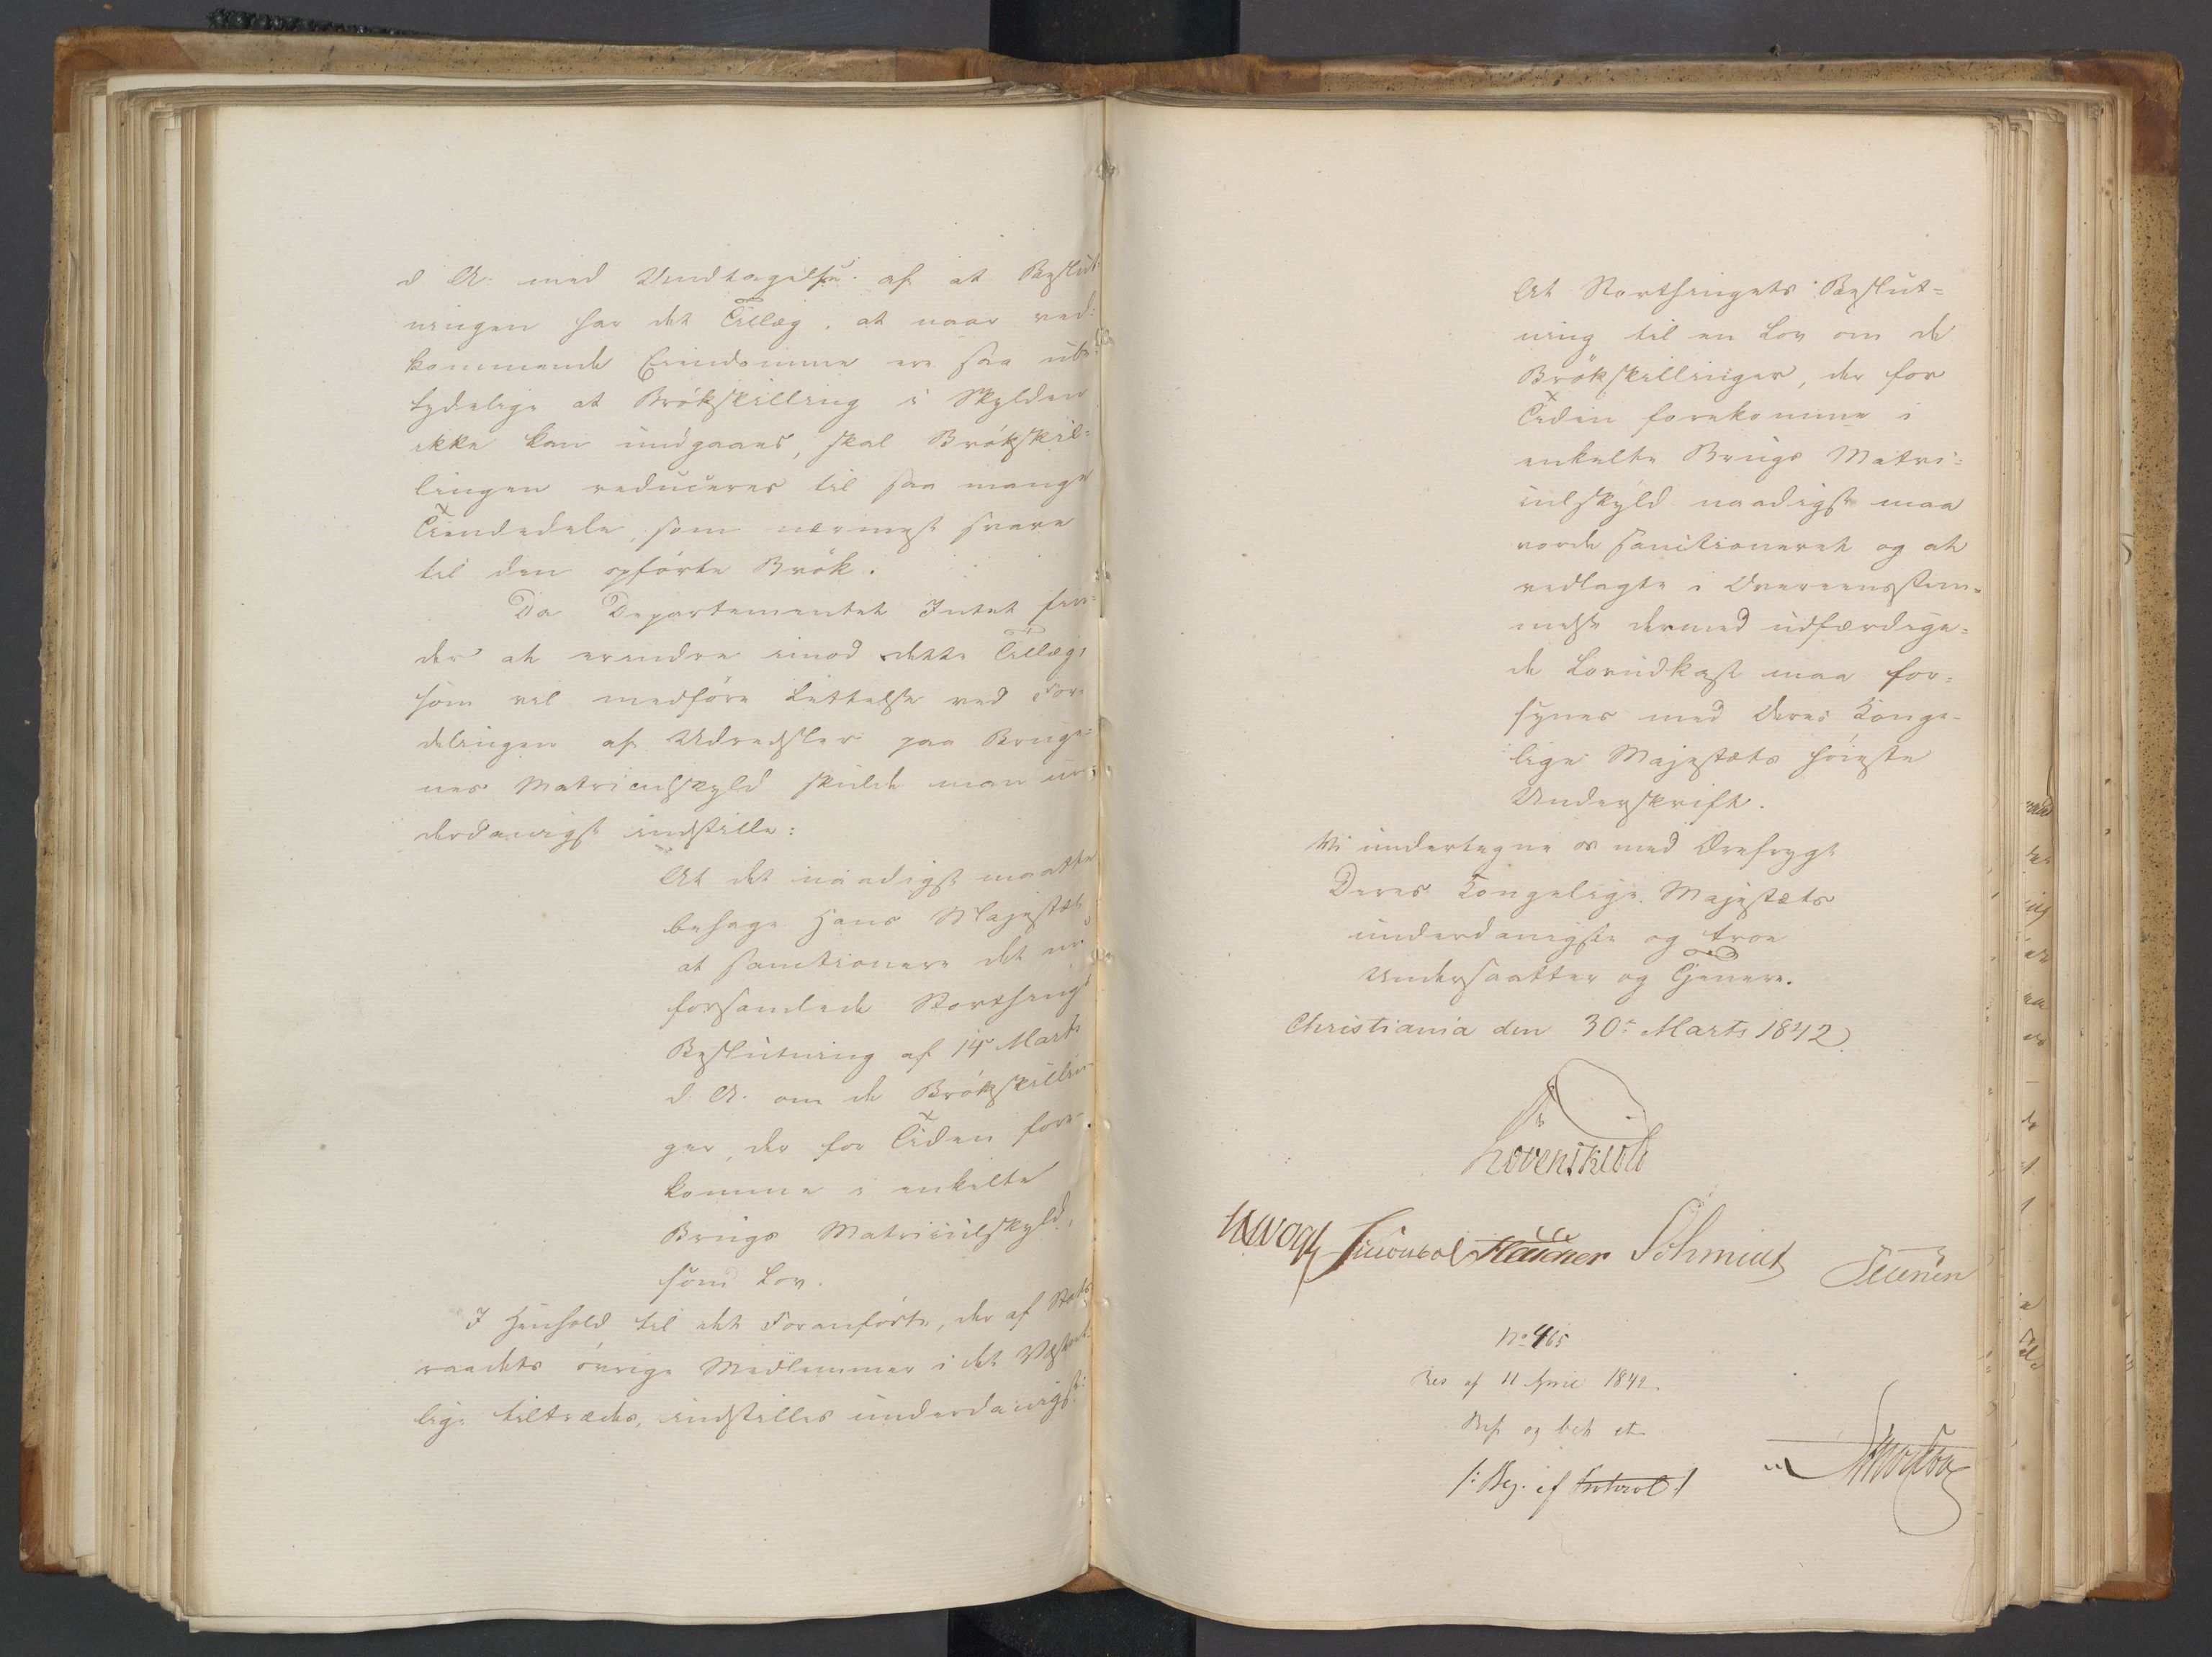 d A. med Undtagelse af at Beslut-
ningen har det Tillæg, at naar ved-
kommende Eiendomme ere saa ube-
tydelige at Brökskilling i Skylden
ikke kan undgaaes, skal Brökskil-
lingen reduceres til saa mange
Tiendedele, som nærmest svare
til den opförte Brök.
Da Departementet Intet fin-
der at erindre imod dette Tillæg,
som vil medföre Lettelse ved For-
delingen af Udredsler paa Bruge-
nes Matriculskyld skulde man un-
derdanigst indstille:
At det naadigst maatte
behage Hans Majestæt
at sanctionere det nu
forsamlede Storthings
Beslutning af 14 Marts
d. A. om de Brökskillin-
ger, der for Tiden fore-
komme i enkelte
Brugs Matriculskyld,
som Lov.
I Henhold til det Foranförte, der af Stats-
raadets övrige Medlemmer i det Væsent-
lige tiltrædes, indstilles underdanigst:
At Storthingets Beslut-
ning til en Lov om de
Brökskillinger, der for
Tiden forekomme i
enkelte Brugs Matri-
culskyld naadigst maa
vorde sanctioneret og at
vedlagte i Overeensstem-
melse dermed udfærdige-
de Lovudkast maa for-
synes med Deres Konge-
lige Majestæts höieste
Underskrift.
Vi undertegne os med Ærefrygt
Deres Kongelige Majestæts
underdanigste og troe
Undersaatter og Tjenere.
Christiania den 30te Marts 1842.
Lövenskiold
Vogt Sibbern Hauner Schmidt
No 465
Res af 11 April 1842.
Bif og bet et
/: Beg. af Protocol :/